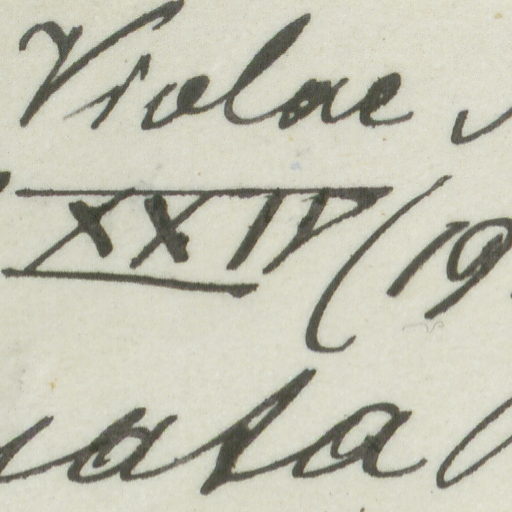 Violae
XXIV (19
ata